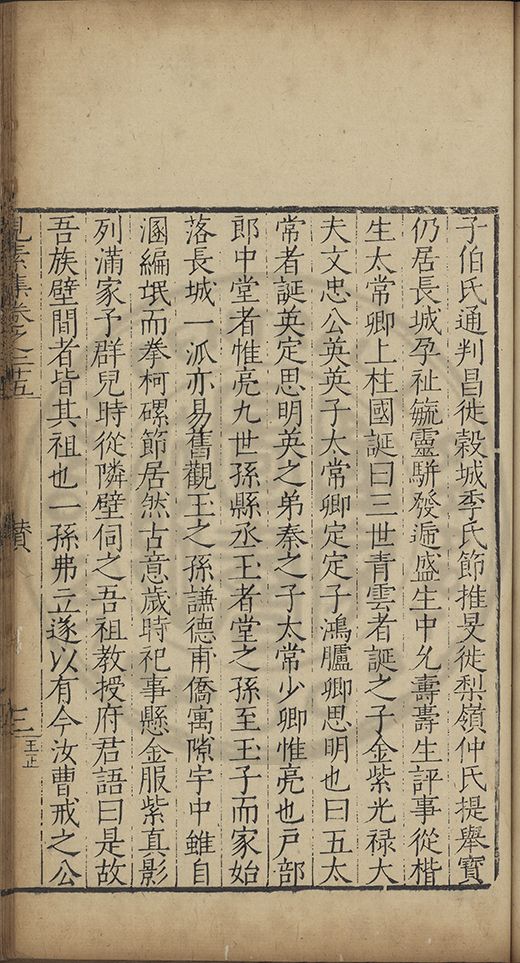 子伯氏通判昌徙榖城季氏節推旻徙梨嶺仲氏提舉寶
仍居長城孕祉毓靈駢發遞盛生中允壽壽生評事從楷
生太常卿上柱國誕曰三世青雲者誕之子金紫光禄大
夫文忠公英英子太常卿定定子鴻臚卿思明也曰五太
常者誕英定思明英之弟秦之子太常少卿惟亮也戸部
郎中堂者惟亮九世孫縣丞玉者堂之孫至玉子而家始
落長城一派亦易舊觀玉之孫謙德甫僑寓隙宇中雖自
溷編氓而拳柯磥節居然古意歲時祀事懸金服紫真影
列滿家予群兒時從隣壁伺之吾祖教授府君語曰是故
吾族壁間者皆其祖也一孫弗立遂以有今汝曹戒之公
見素集卷之二十五
賛
三
王正